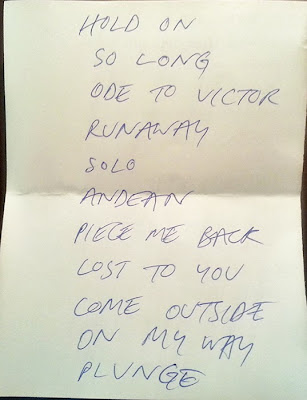 HOLD ON
SO LONG
ODE TO VICTOR
RUNAWAY
SOLO
ANDEAN
PIECE ME BACK
LOST TO YOU
COME OUTSIDE
ON MY WAY
PLUNGE